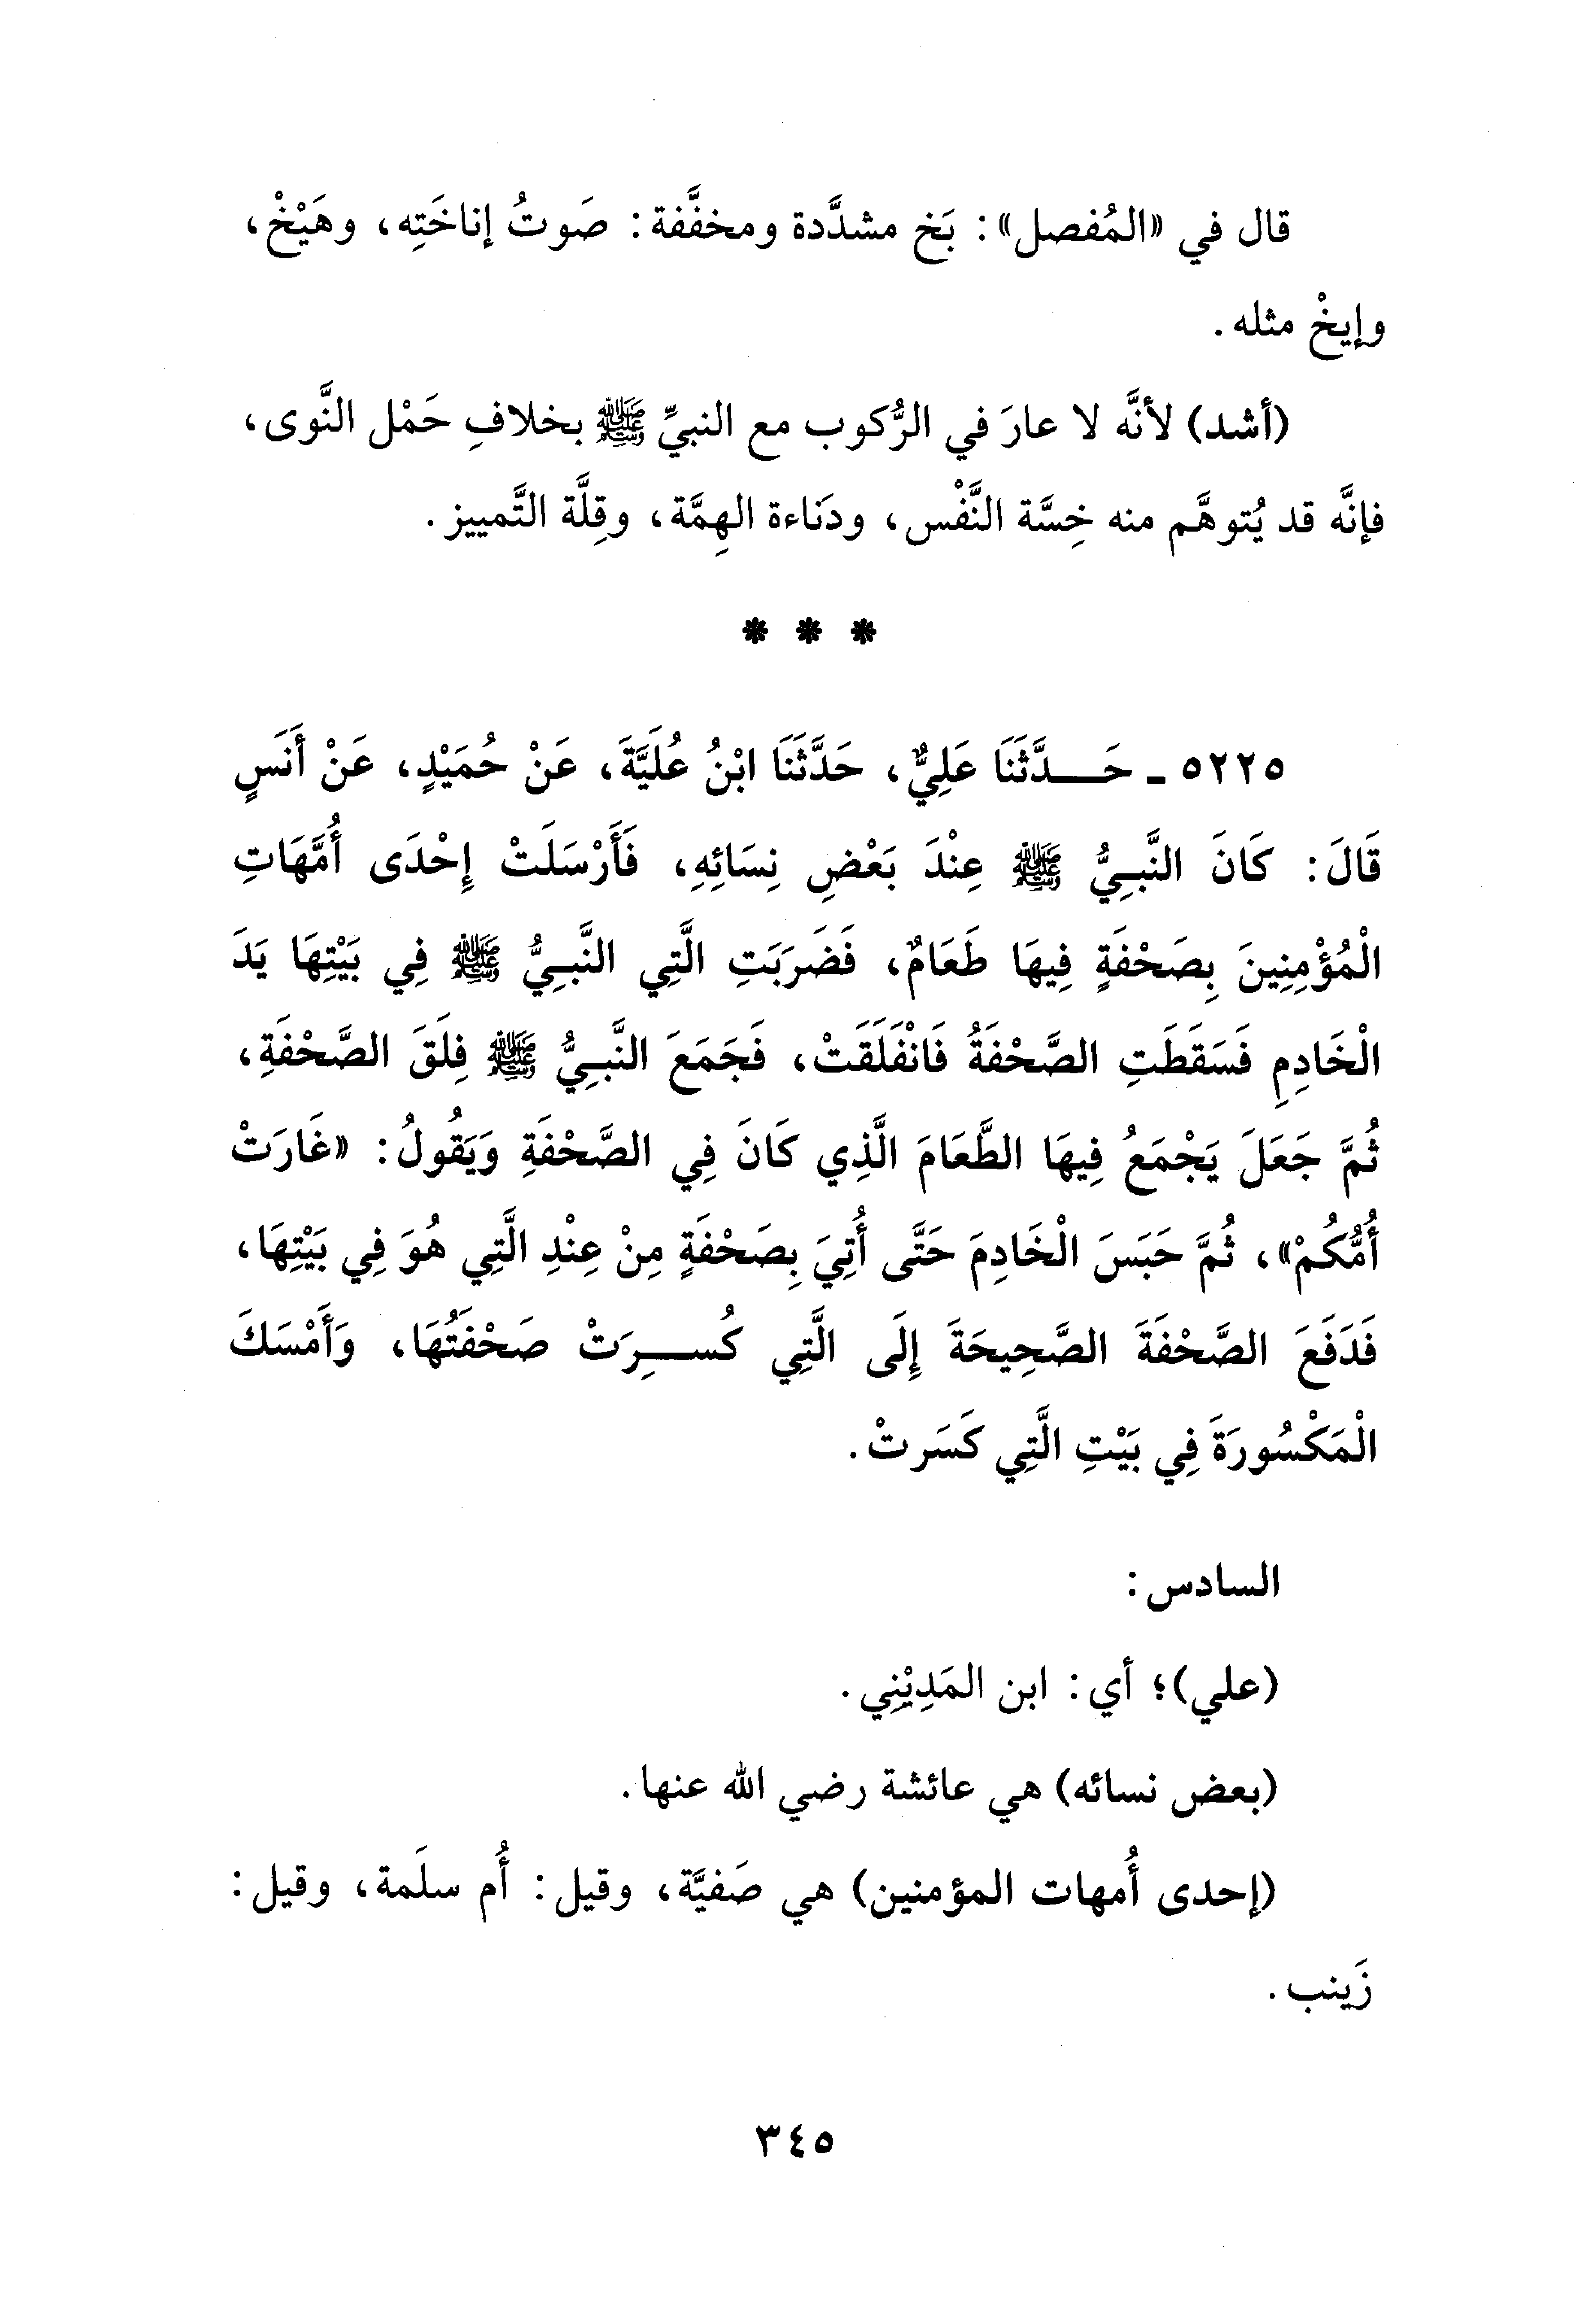 قال في «المُفصل»: بَخ مشدَّدة ومخفَّفة: صَوتُ إناخَتِه، وهَيْخْ،
وإيخْ مثله.
(أشد) لأنَّه لا عارَ في الرُّكوب مع النبيِّ ﷺ بخلافِ حَمْل النَّوى،
فإنَّه قد يُتوهَّم منه خِسَّة النَّفْس، ودَناءة الهِمَّة، وقِلَّة التَّمييز.
* * *
٥٢٢٥ ـ حَدَّثَنَا عَلِيٌّ، حَدَّثَنَا ابْنُ عُلَيَّةَ، عَنْ حُمَيْدٍ، عَنْ أَنَسٍ
قَالَ: كَانَ النَّبِيُّ ﷺ عِنْدَ بَعْضِ نِسَائِهِ، فَأَرْسَلَتْ إِحْدَى أُمَّهَاتِ
الْمُؤْمِنِينَ بِصَحْفَةٍ فِيهَا طَعَامٌ، فَضَرَبَتِ الَّتِي النَّبِيُّ ﷺ فِي بَيْتِهَا يَدَ
الْخَادِمِ فَسَقَطَتِ الصَّحْفَةُ فَانْفَلَقَتْ، فَجَمَعَ النَّبِيُّ ﷺ فِلَقَ الصَّحْفَةِ،
ثُمَّ جَعَلَ يَجْمَعُ فِيهَا الطَّعَامَ الَّذِي كَانَ فِي الصَّحْفَةِ وَيَقُولُ: «غَارَتْ
أُمُّكُمْ»، ثُمَّ حَبَسَ الْخَادِمَ حَتَّى أُتِيَ بِصَحْفَةٍ مِنْ عِنْدِ الَّتِي هُوَ فِي بَيْتِهَا،
فَدَفَعَ الصَّحْفَةَ الصَّحِيحَةَ إِلَى الَّتِي كُسِرَتْ صَحْفَتُهَا، وَأَمْسَكَ
الْمَكْسُورَةَ فِي بَيْتِ الَّتِي كَسَرتْ.
السادس:
(علي)؛ أي: ابن المَدِيْنِي.
(بعض نسائه) هي عائشة رضي الله عنها.
(إحدى أُمهات المؤمنين) هي صَفيَّة، وقيل: أُم سلَمة، وقيل:
زَينب.
٣٤٥